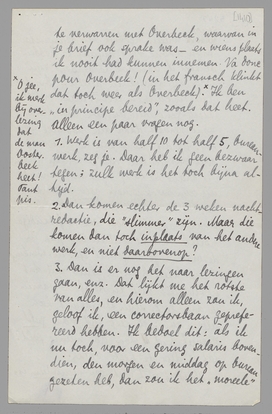 te verwarren met Overbeck, waarvan in
je brief ook sprake was — en wiens plaats
ik nooit had kunnen innemen. Va donc
pour Overbeck! (in het fransch klinkt
dat toch weer als Overbeck).* Ik ben
„in principe bereid", zooals dat heet.
Alleen een paar vragen nog.
* O jee,
ik merk
bij over-
lezing
dat
de man
Ooster-
beek
heet!
Tant
pis.
1. Werk is van half 10 tot half 5, bureau-
werk, zeg je. Daar heb ik geen bezwaar
tegen; zulk werk is het toch bijna al-
tijd.
2. Dan komen echter de 3 weken nacht-
redactie, die "slimmer" zijn. Maar die
komen dan toch inplaats van het andere
werk, en niet daarbovenop?
3. Dan is er nog het naar lezingen
gaan, enz. Dat lijkt me het rotste
van alles, en hierom alleen zou ik,
geloof ik, een correctorsbaan geprefe-
reerd hebben. Ik bedoel dit: als ik
nu toch, voor een gering salaris boven-
dien, den morgen en middag op bureau
gezeten heb, dan zou ik het „moreele"